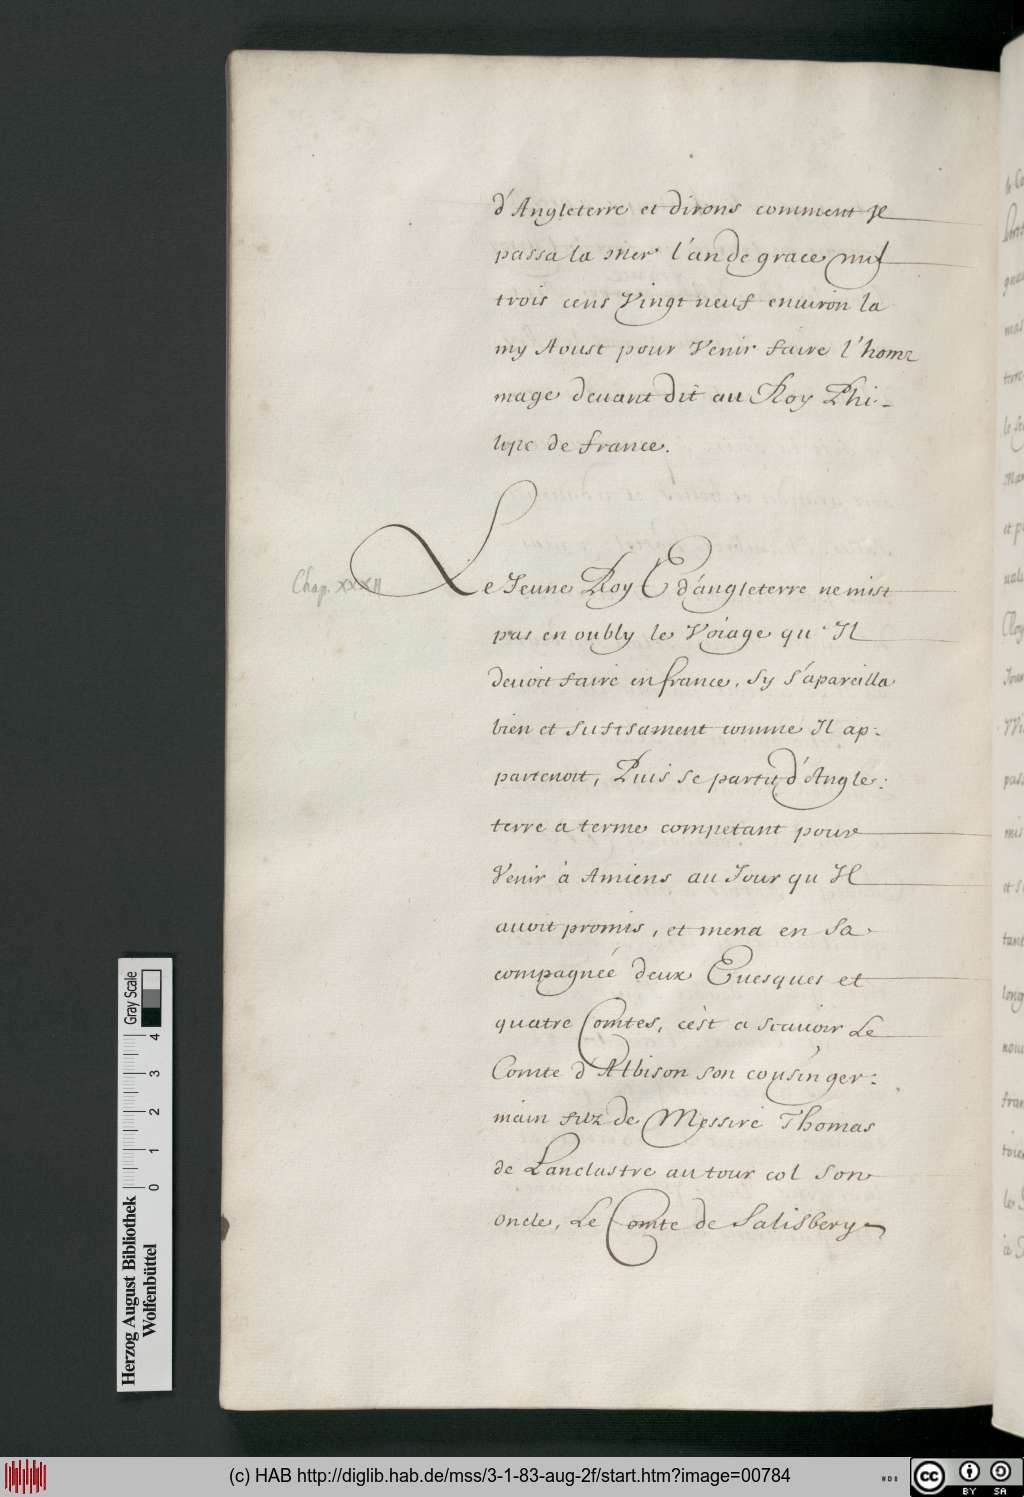 d'Angleterre et dirons comment Il
passa la Mer l'an de grace mil
trois cens Vingt neuf enuiron la
my Aoust pour Venir faire l'hom=
mage deuant dit au Roy Phi-
lipe de france.
Chap. XXXII
Le Jeune Roy E d'angleterre ne mist
pas en oubly le Voiage qu'Il
deuoit faire en france, sy s'apareilla
bien et sufisament comme Il ap=
partenoit, Puis se partit d'Angle=
terre a terme competant pour
Venir à Amiens au Jour qu Il
auoit promis, et mena en sa
compagnée deux Euesques et
quatre Comtes, c'est a scauoir Le
Comte d'Albison son cousin ger=
main filz de Messire Thomas
de Lanclastre au tour col son
oncle, Le Comte de Salisbery
Herzog August Bibliothek
Wolfenbüttel
0 1 2 3 4 Gray Scale
(c) HAB http://diglib.hab.de/mss/3-1-83-aug-2f/start.htm?image=00784
WDB
cc BY SA